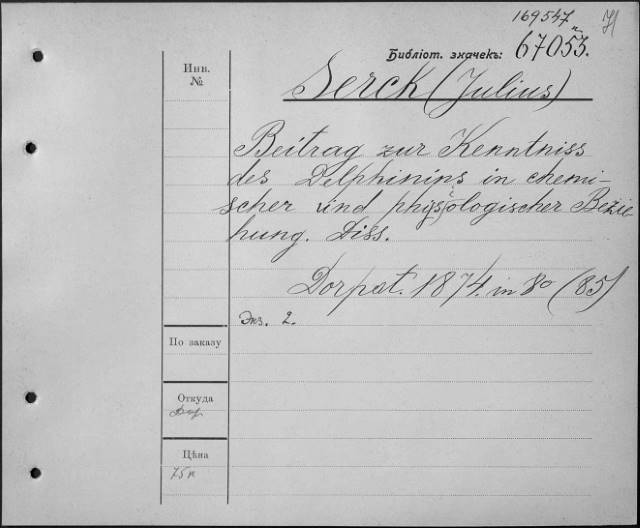 169547
Библіот. значекъ: 67053.
Инв.
№
Serck (Julius)
Beitrag zur Kenntniss
des Delphinins in chemi-
scher und physiologischer Bezie
hung. Diss.
Dorpat. 1874. in 8º (85)
Экз. 2.
По заказу
Откуда
Цѣна
75 к